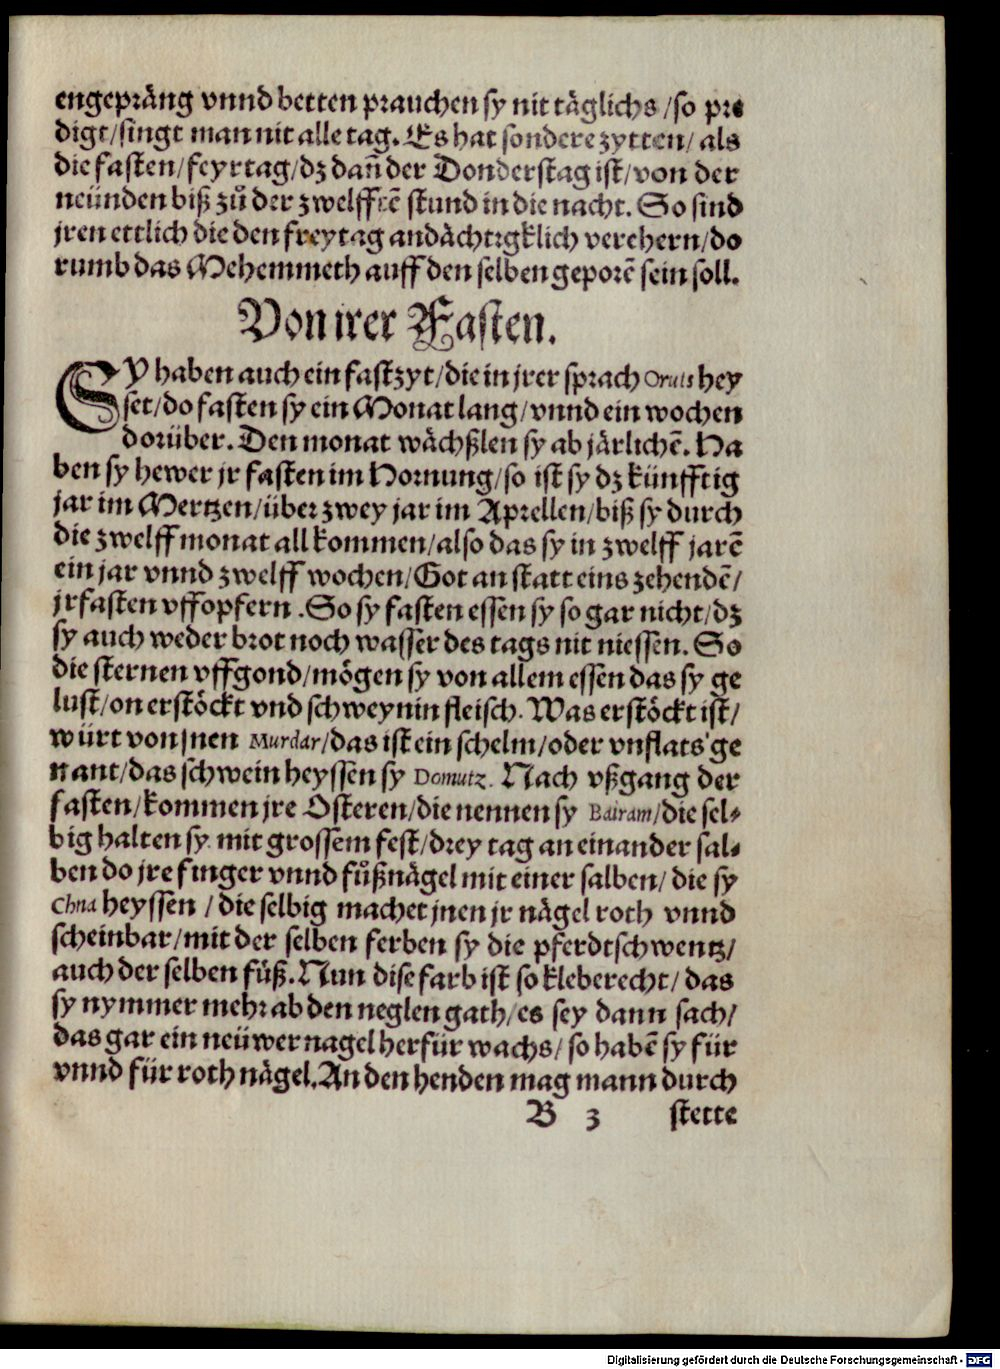 engepräng vnnd betten prauchen sy nit täglichs /so pre
digt/singt man nit alle tag. Es hat sondere zytten/ als
die fasten/feyrtag/dz dañ der Donderstag ist/von der
neünden biß zů der zwelfftē stund in die nacht. So sind
jren ettlich die den freytag andächtigklich verehern/do
rumb das Mehemmeth auff den selben geporē sein soll.
Von irer Fasten.
SY haben auch ein fastzyt/die in jrer sprach Oruts hey
set/do fasten sy ein Monat lang/vnnd ein wochen
dorüber. Den monat wächßlen sy ab järlichē. Ha
ben sy hewer jr fasten im Hornung/so ist sy dz künfftig
jar im Mertzen/über zwey jar im Aprellen/biß sy durch
die zwelff monat all kommen/also das sy in zwelff jarē
ein jar vnnd zwelff wochen/Got an statt eins zehendē/
jr fasten vffopfern .So sy fasten essen sy so gar nicht/dz
sy auch weder brot noch wasser des tags nit niessen. So
die sternen vffgond/mögen sy von allem essen das sy ge
lust/on erstöckt vnd schweynin fleisch. Was erstöckt ist/
würt von jnen Murdar/das ist ein schelm/oder vnflats ge
nant/das schwein heyssen sy Domutz. Nach vßgang der
fasten/kommen jre Osteren/die nennen sy Bairam/die sel-
big halten sy mit grossem fest/drey tag an einander sal-
ben do jre finger vnnd fůßnägel mit einer salben/ die sy
Chna heyssen / die selbig machet jnen jr nägel roth vnnd
scheinbar/mit der selben ferben sy die pferdtschwentz/
auch der selben fůß. Nun dise farb ist so kleberecht/ das
sy nymmer mehr ab den neglen gath/es sey dann sach/
das gar ein neüwer nagel herfür wachs/ so habē sy für
vnnd für roth nägel. An den henden mag mann durch
B 3 stette
Digitalisierung gefördert durch die Deutsche Forschungsgemeinschaft - DFG